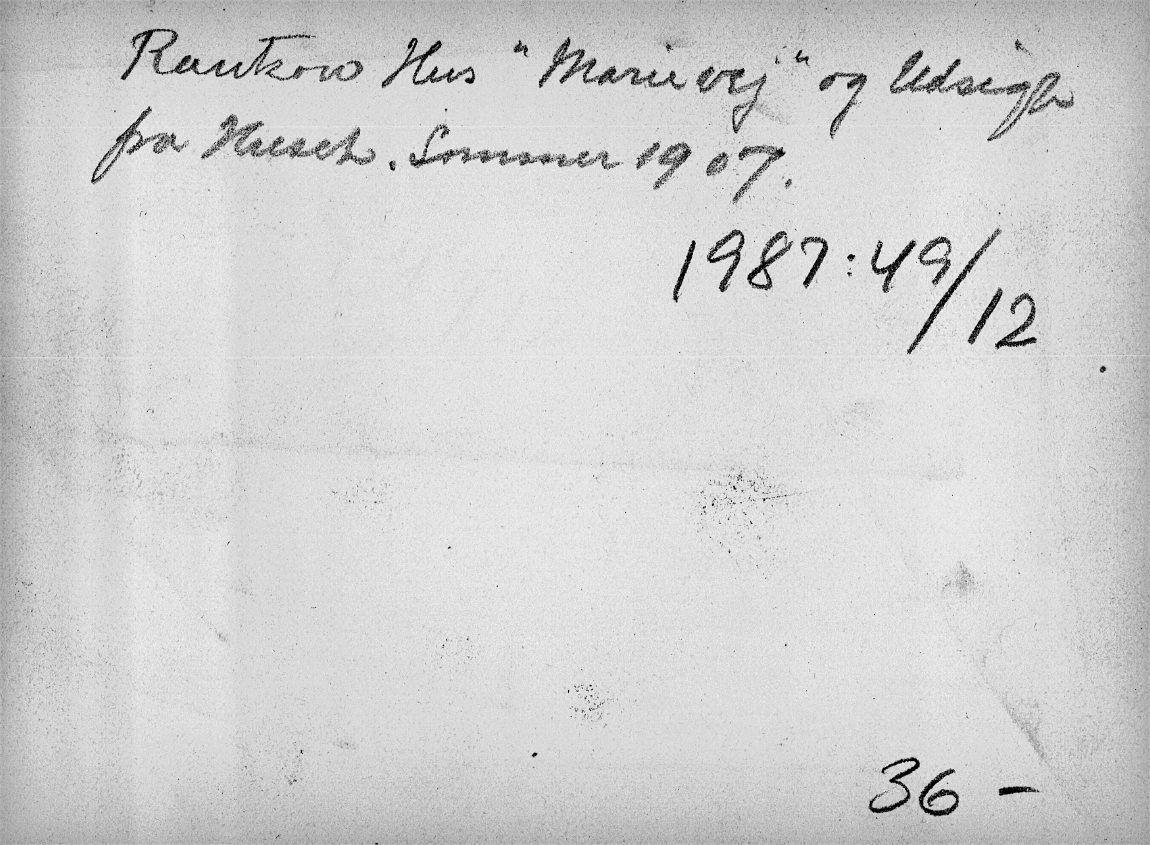 Rantkow Hus "Marievej" og Udsigt
fra Huset. Sommer 1907.
1987:49/12
36 -